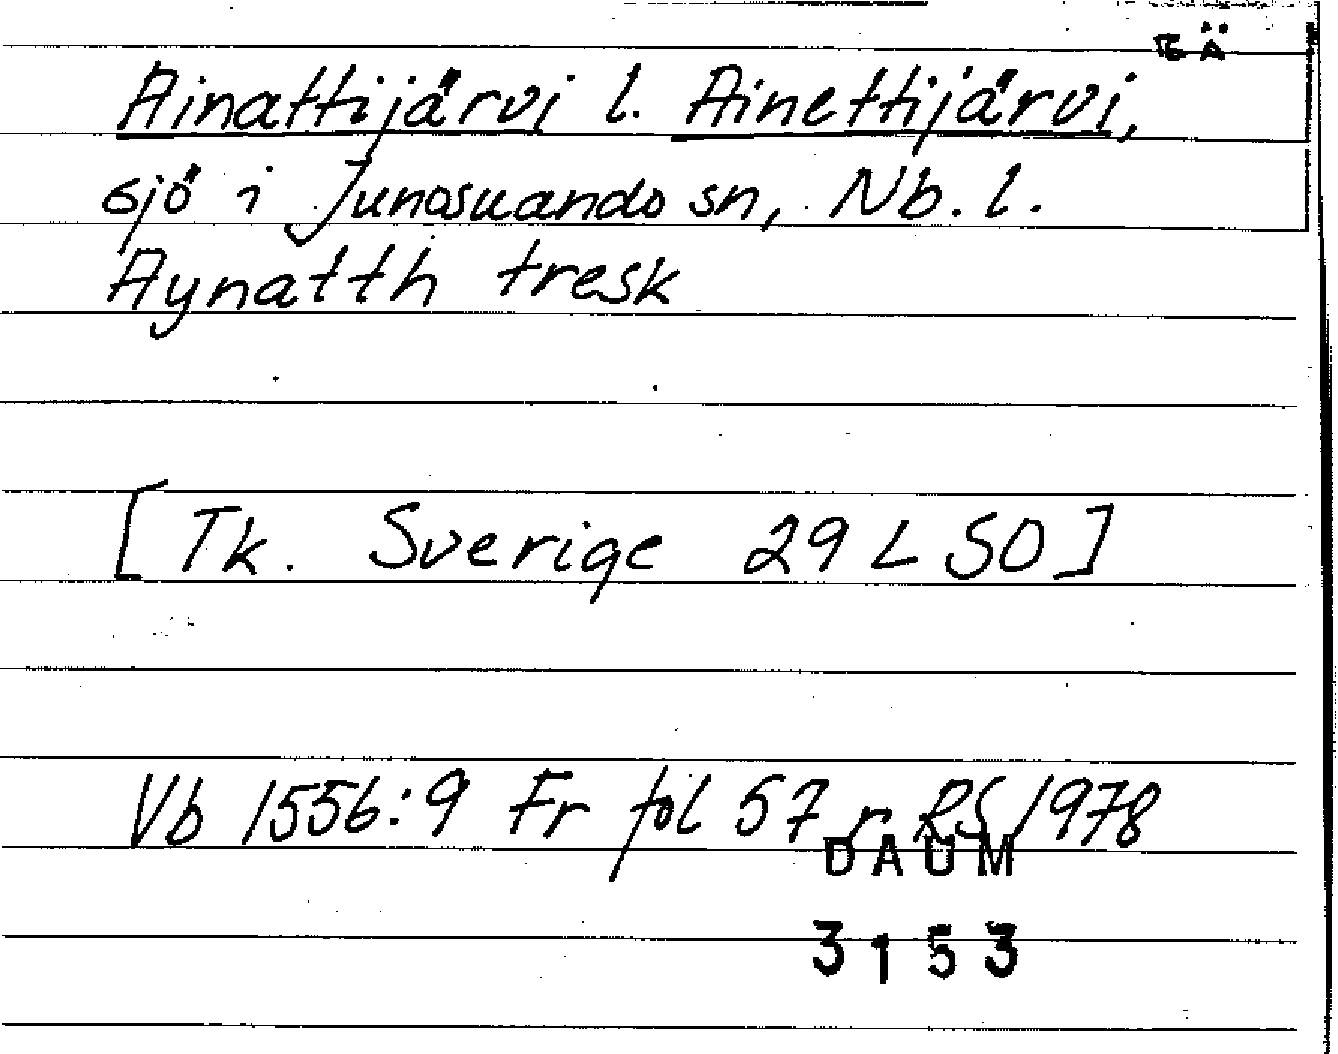 EÄ
Ainattijärvi l. Ainettijärvi,
sjö i Junosuando sn, Nb. l.
Aynatth tresk
[Tk. Sverige 29 L SO]
Vb 1556:9 Fr fol 57 r RS 1978
DAUM
3153